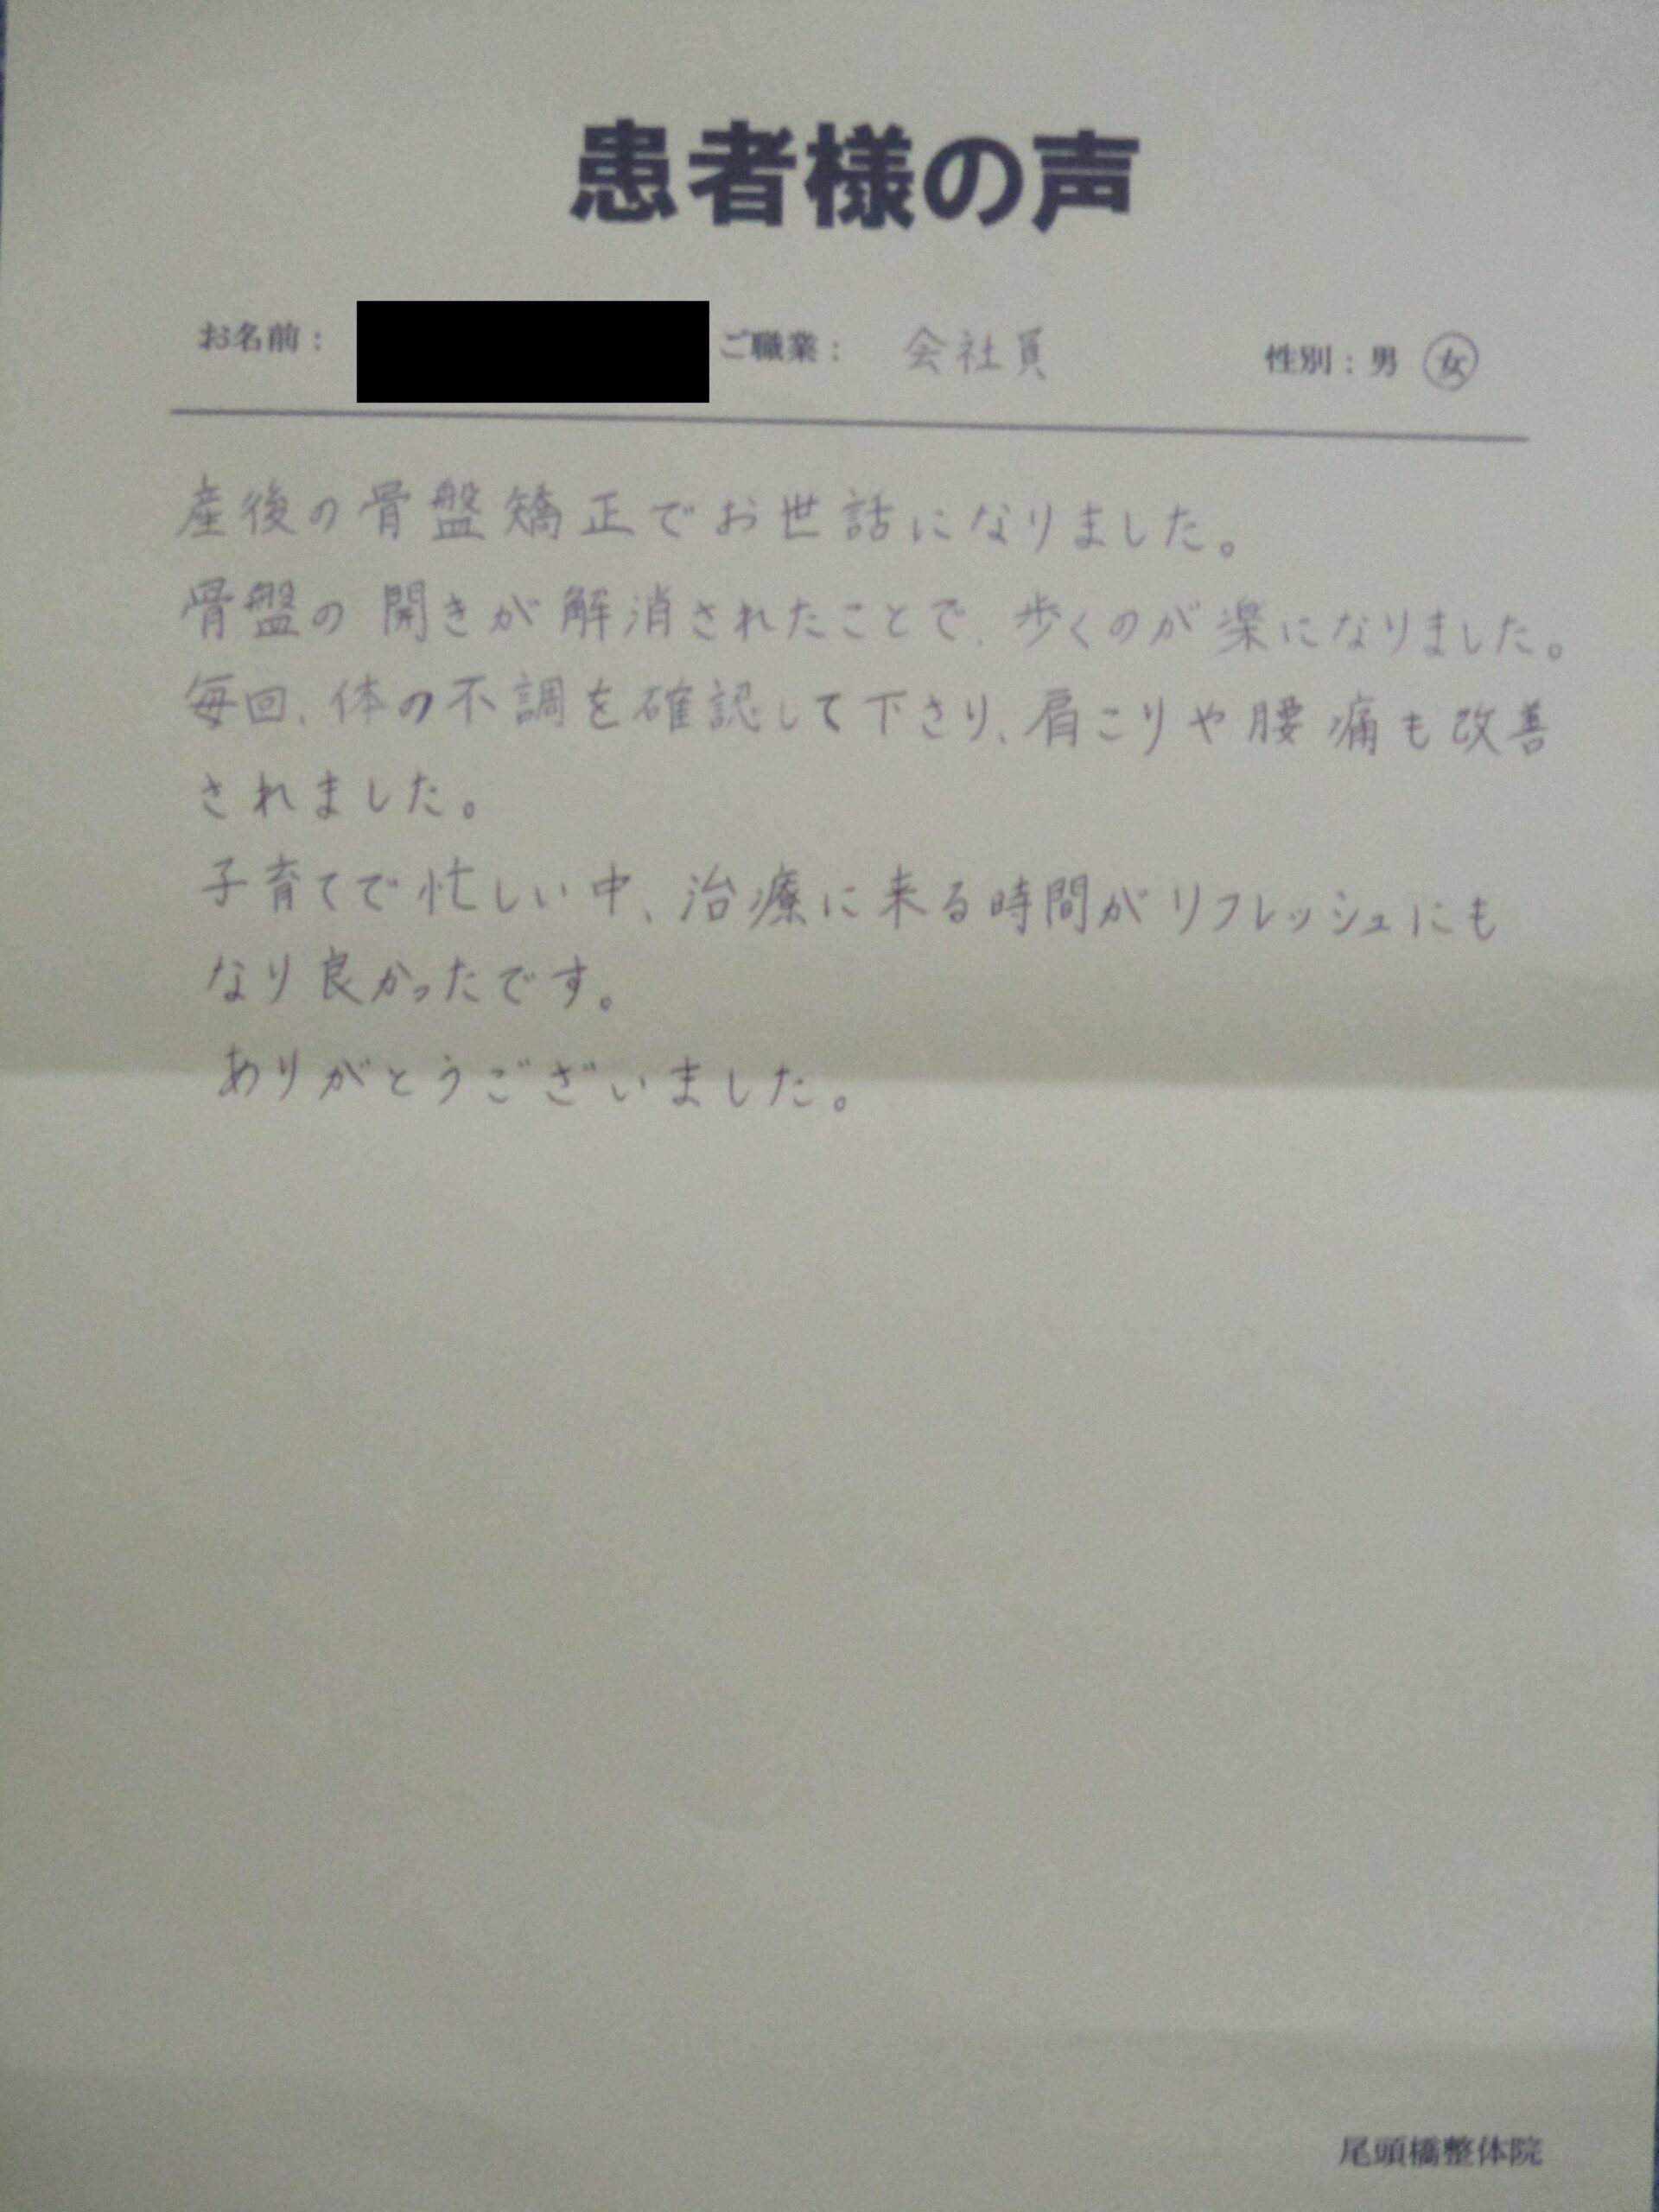 患者様の声
お名前： ご職業： 会社員 性別：男 女
産後の骨盤矯正でお世話になりました。
骨盤の開きが解消されたことで、歩くのが楽になりました。
毎回、体の不調を確認して下さり、肩こりや腰痛も改善
されました。
子育てで忙しい中、治療に来る時間がリフレッシュにも
なり良かったです。
ありがとうございました。
尾頭橋整体院